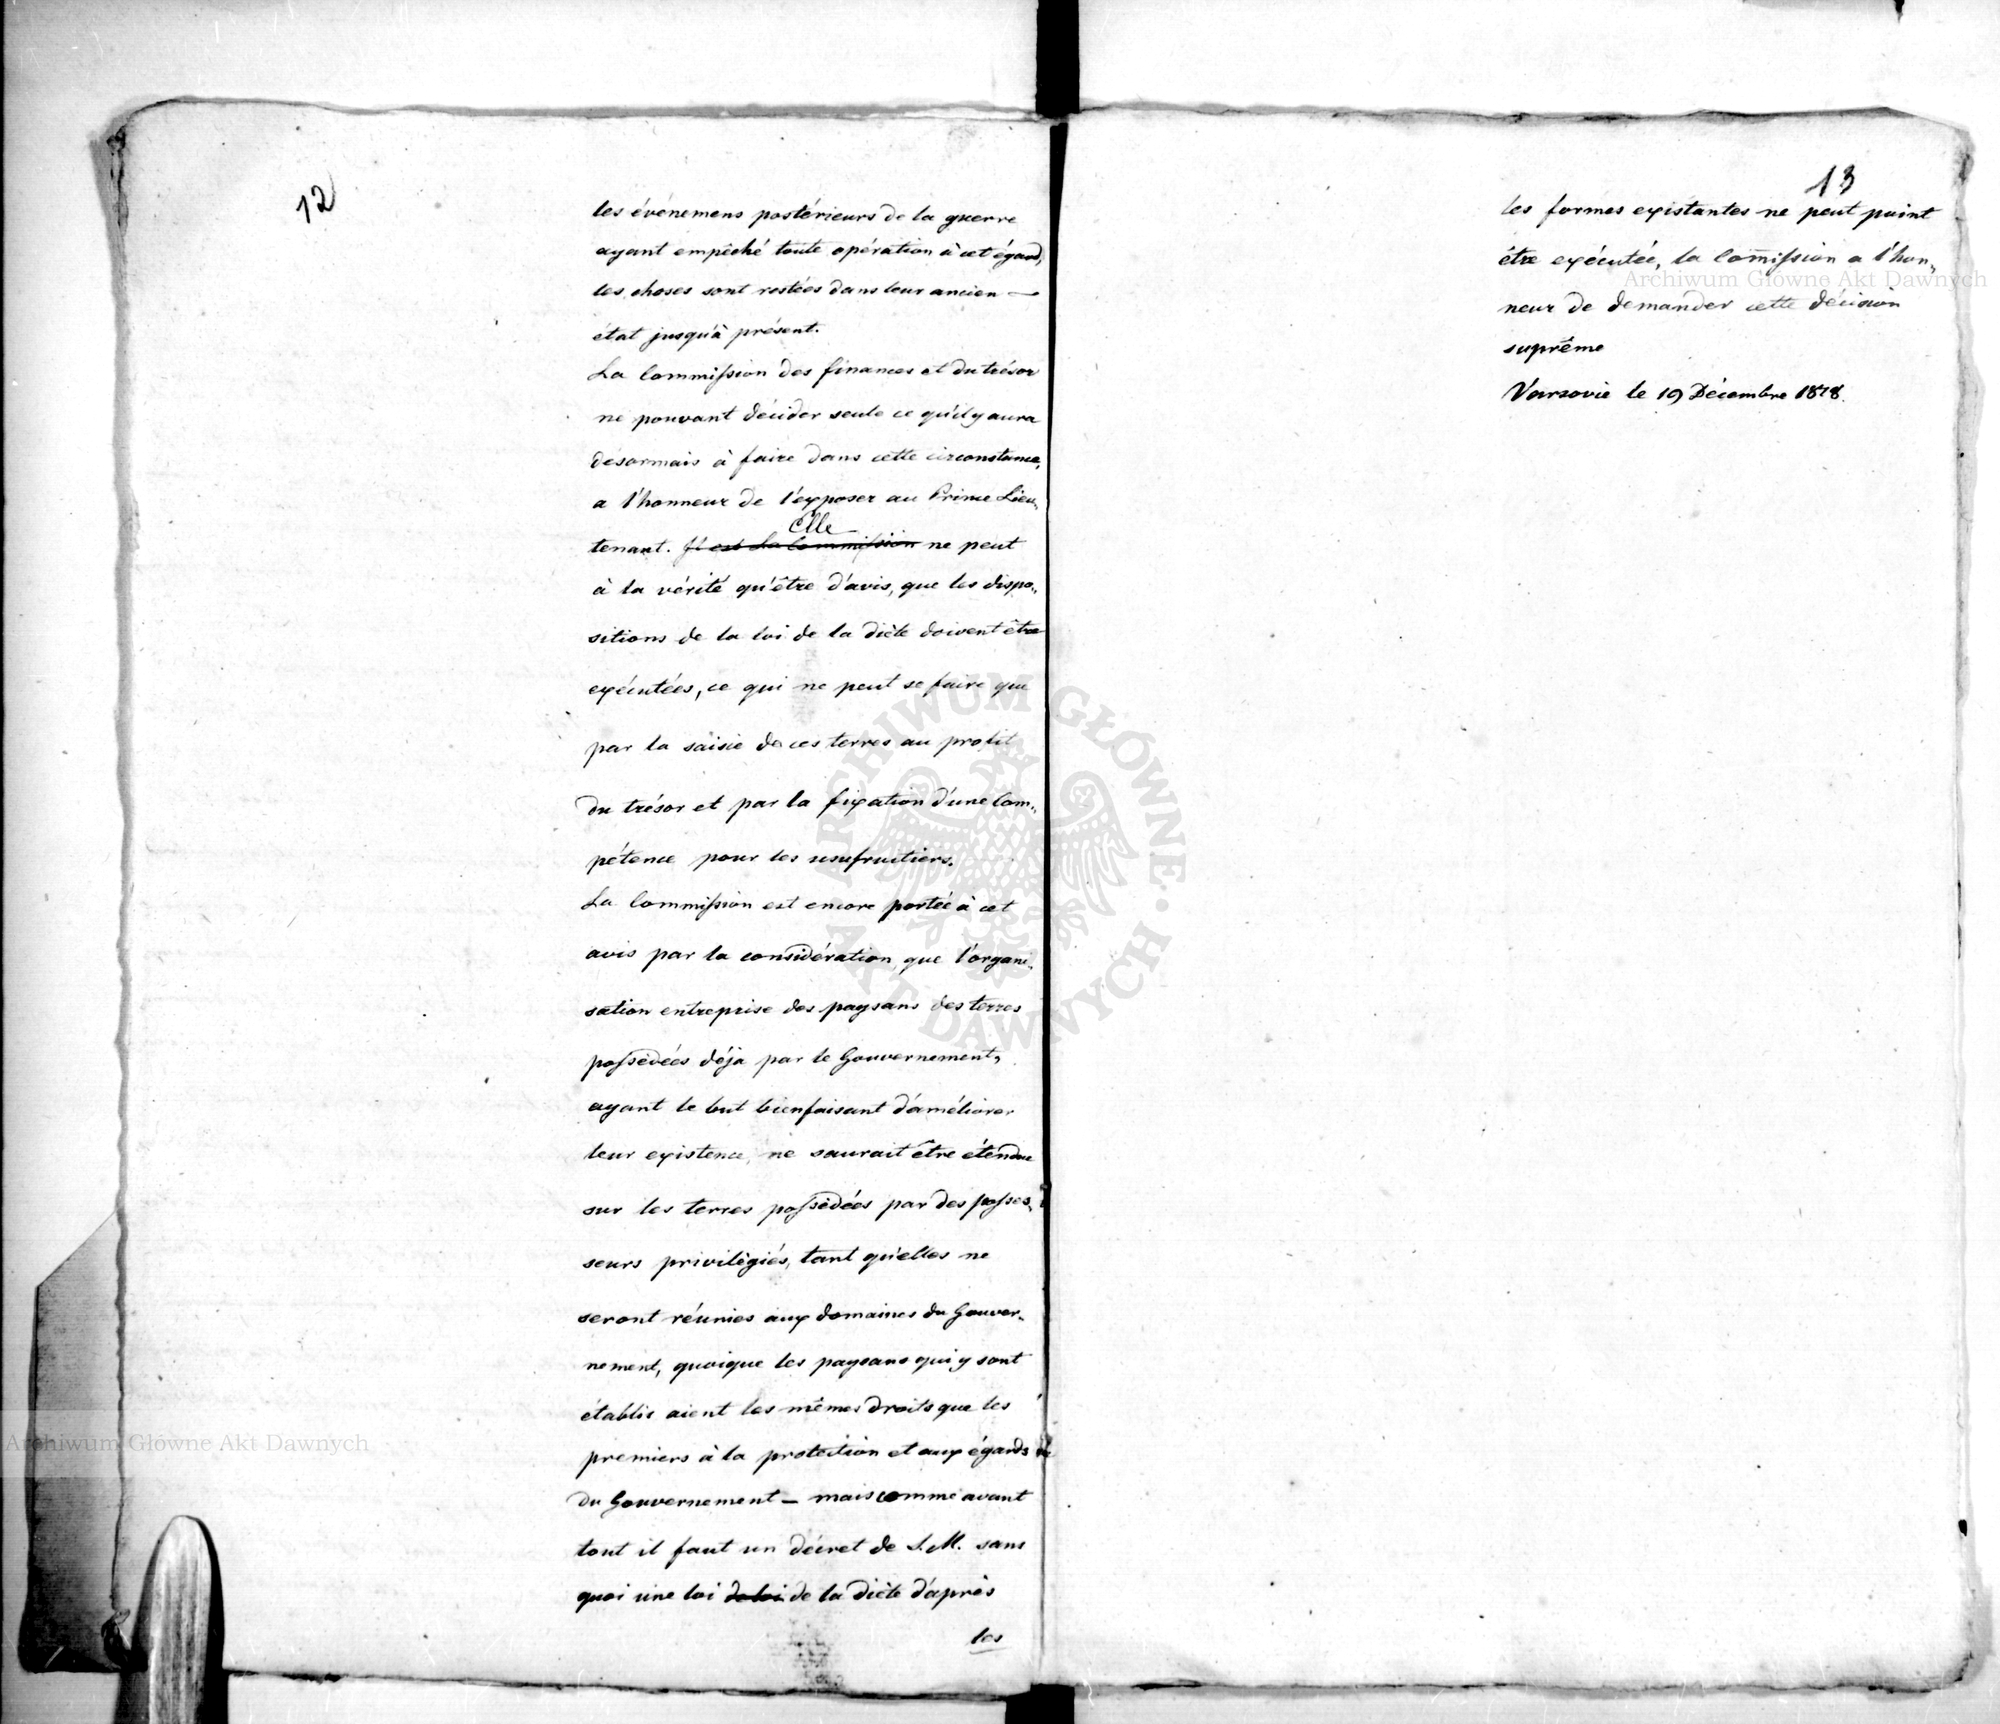 12
les événemens postérieurs de la guerre
ayant empêché toute opération à cet égard,
les choses sont restées dans leur ancien —
état jusqu'à présent.
La Commission des finances et du trésor
ne pouvant décider seule ce qu'il y aura
désormais à faire dans cette circonstance,
a l'honneur de l'exposer au Prince Lieu„
Elle
tenant. Il est La Commission ne peut
à la vérité qu'être d'avis, que les dispo„
sitions de la loi de la diète doivent être
exécutées, ce qui ne peut se faire que
par la saisie de ces terres au profit
du trésor et par la fixation d'une Com„
pétence pour les usufruitiers.
La Commission est encore portée à cet
avis par la considération, que l'organi„
sation entreprise des paysans des terres
possédées déja par le Gouvernement,
ayant le but bienfaisant d'améliorer
leur existence, ne saurait être étendue
sur les terres possédées par des posses„
seurs privilégiés, tant qu'elles ne
seront réunies aux domaines du Gouver„
nement, quoique les paysans qui y sont
établis aient les mêmes droits que les
premiers à la protection et aux égards
du Gouvernement — mais comme avant
tout il faut un décret de S. M. sans
quoi une loi de loi de la diète d'après
les
13
les formes existantes ne peut point
être exécutée, la Comission a l'hon„
neur de demander cette décision
suprême
Varsovie le 19 Décembre 1818.
Archiwum Główne Akt Dawnych
Archiwum Główne Akt Dawnych
ARCHIWUM GŁÓWNE AKT DAWNYCH